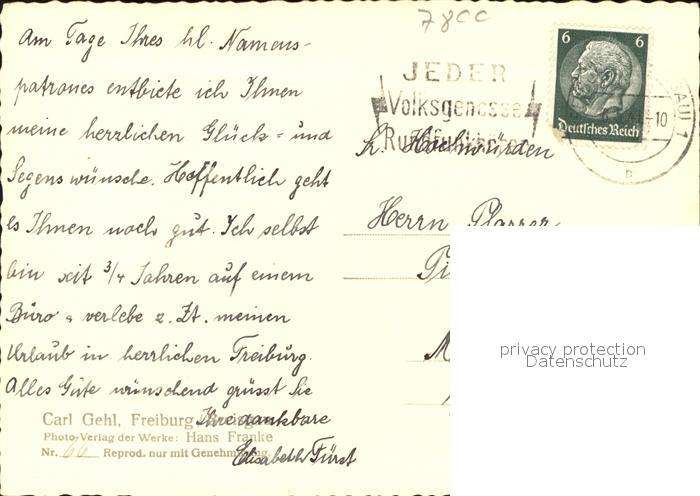 Am Tage Ihres hl. Namens-
patrones entbiete ich Ihnen
meine herrlichen Glück- und
Segenswünsche. Hoffentlich geht
es Ihnen noch gut. Ich selbst
bin seit 3/4 Jahren auf einem
Büro u. verlebe z. Zt. meinen
Urlaub in herrlichen Freiburg.
Alles Gute wünschend grüsst Sie
Ihre dankbare
Elisabeth Fürst
Carl Gehl, Freiburg
Photo-Verlag der Werke: Hans Franke
Nr. 60 Reprod. nur mit Genehmigung
78CC
JEDER
Volksgenosse
6 6
Deutsches Reich
-10
B
Sr. Hochwürden
Herrn Pfarrer
privacy protection
Datenschutz